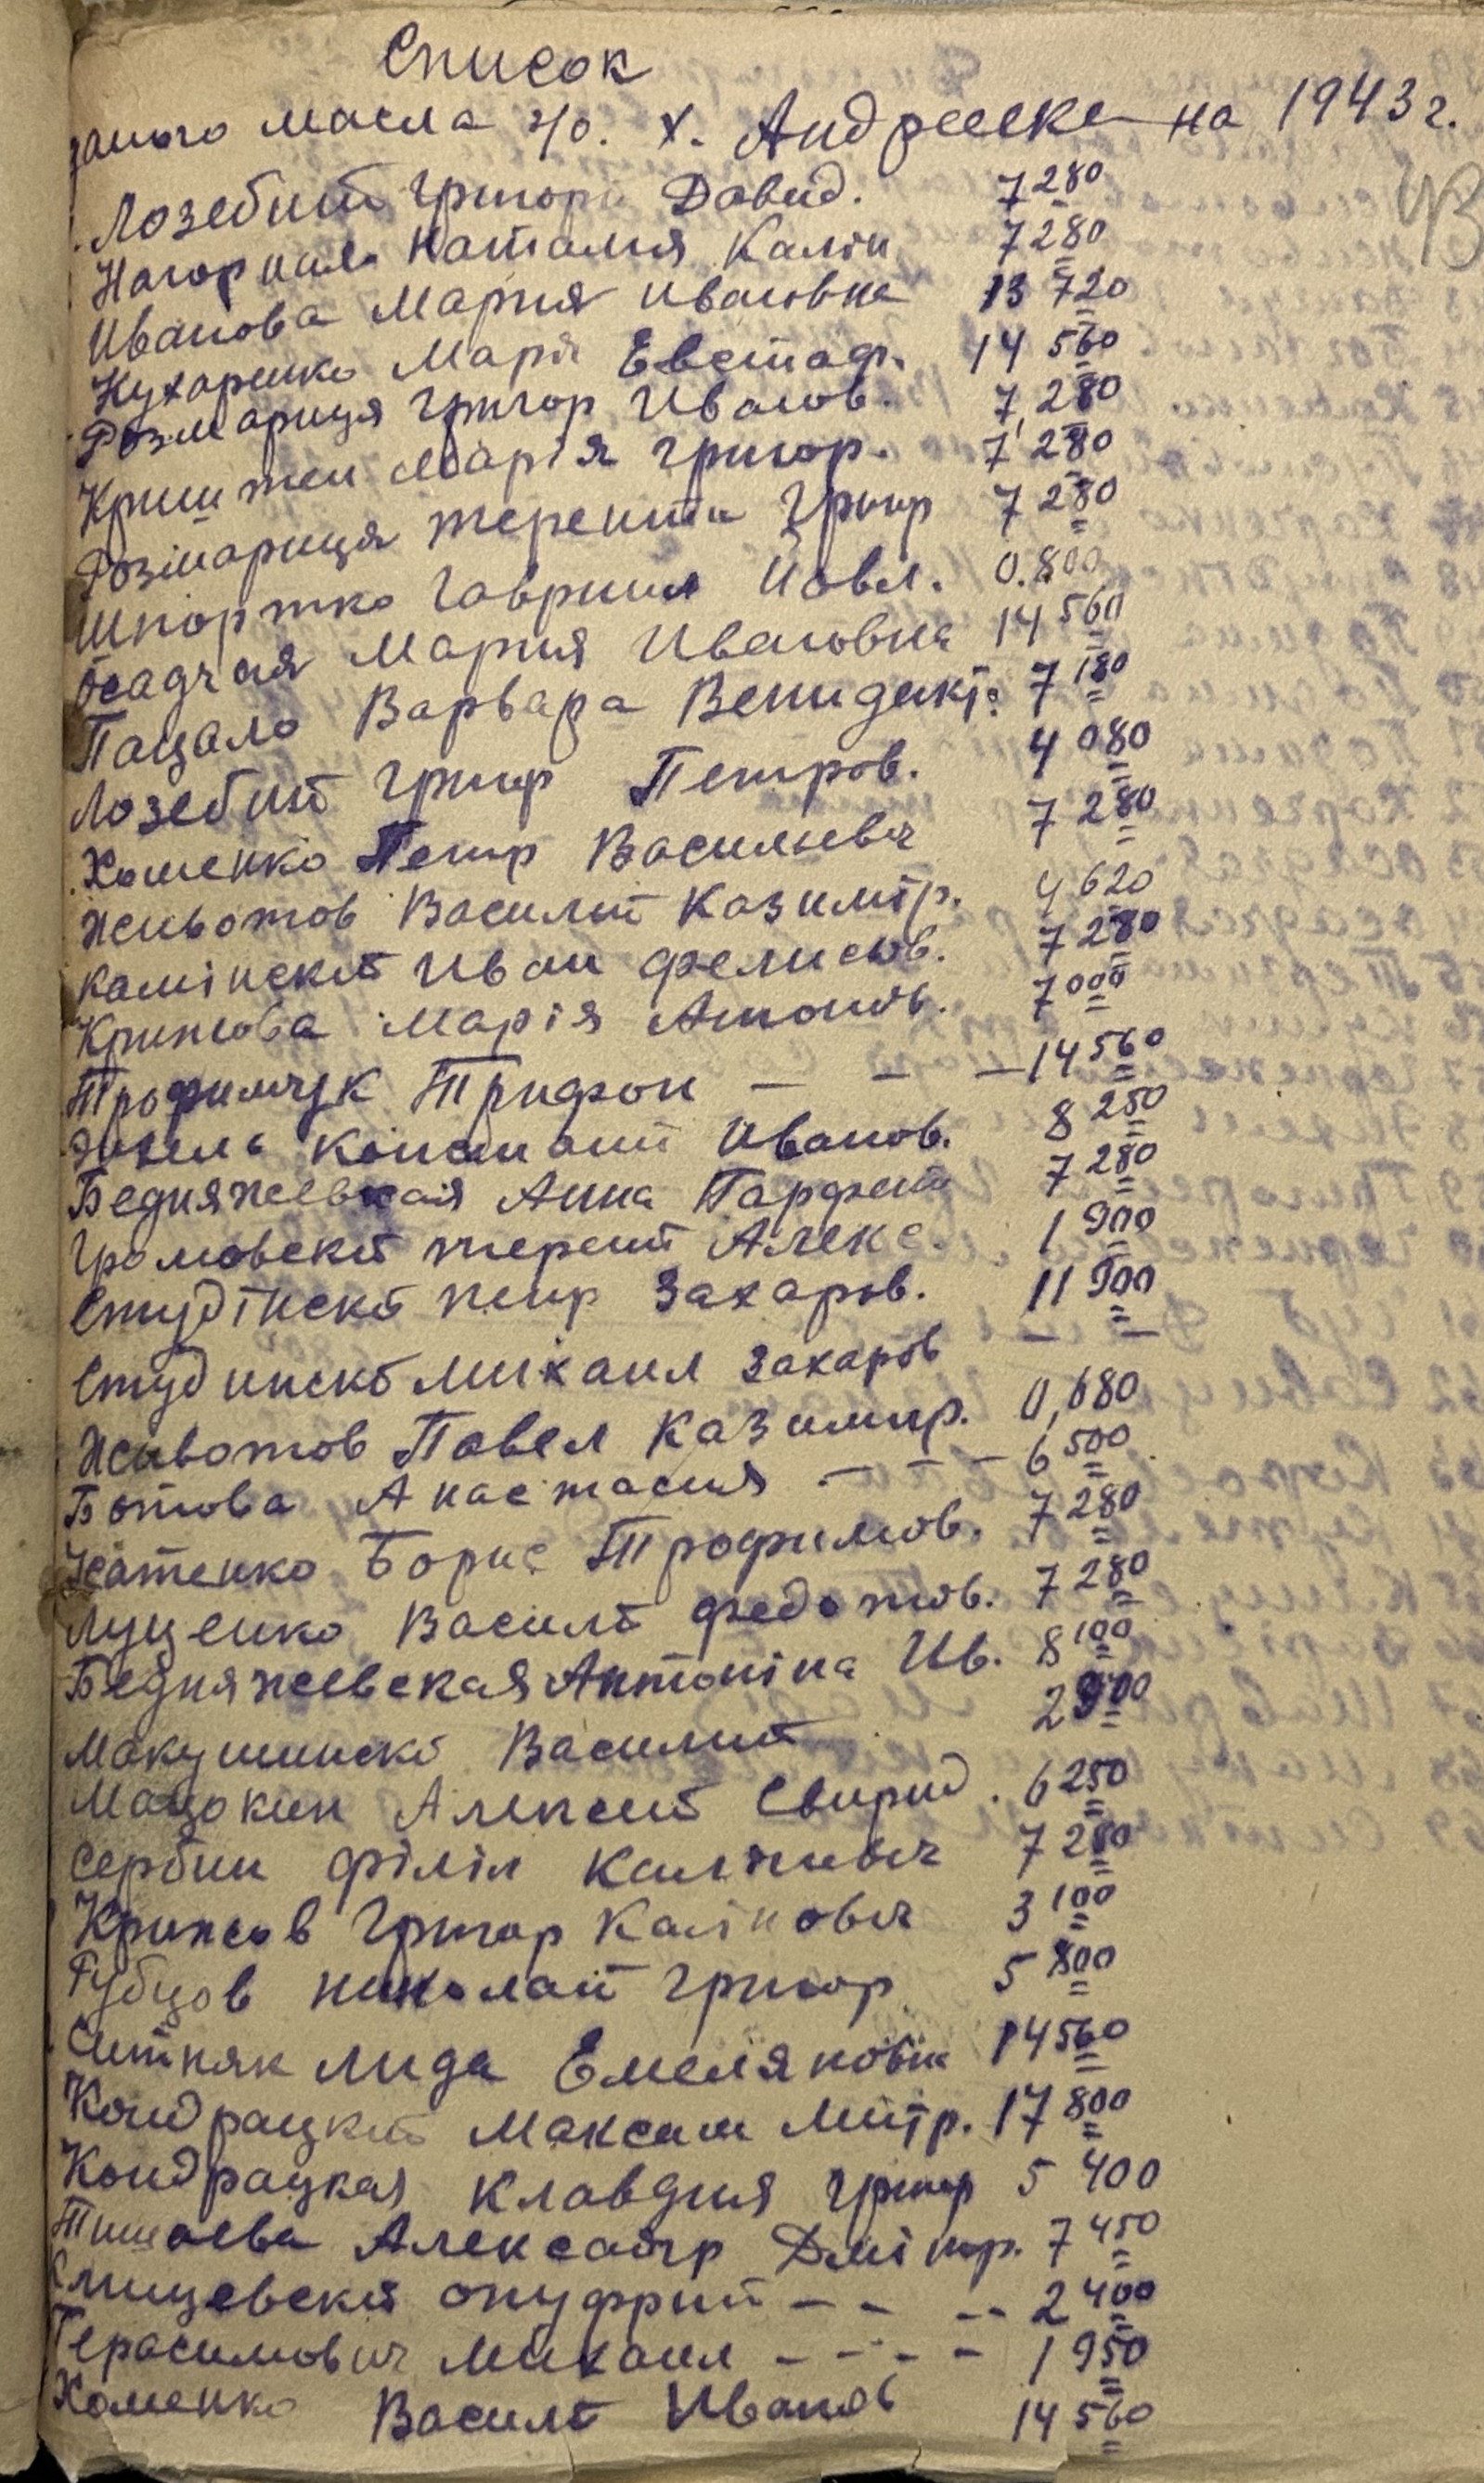 Список
даного масла г/о. х. Андреевке на 1943 г.
Лозебний Григори Давид. 7 280
Нагорная Наталия Калін 7 280
Иванова Мария Ивановна 13 720
Кухаренко Марія Евстаф. 14 560
Розмариця Григор Иванов. 7,280
Марія Григор. 7 280
Розмариця Терентий Григор 7 280
Шпортко Гавриил Павл. 0.800
Осадчая Мария Ивановна 14 560
Пацало Варвара Венидикт. 7 180
Лозебний Григор Петров. 4 080
Хоменко Петр Василиевич 7 280
Животов Василий Казимір. 4 620
Камінский Иван Фелисов. 7 280
Марія Антонов. 7 000
Трофимчук Трифон — — — 14 560
Констант Иванов. 8 250
Бедняжевская Анна Парфент 7 280
Громовский Терент Алекс. 1 900
Студінский Петр Захаров. 11 900
Студинский Михаил Захаров — —
Животов Павел Казимир. 0,680
Ботова Анастасия — — — 6 500
Борис Трофимов. 7 280
Луценко Василь Федотов. 7 280
Бедняжевская Антоніна Ив. 8 100
Макушинский Василий 2 900
Мацокин Алексей Свирид. 6 250
Сербин Філіп Калінович 7 280
Григор Калінович 3 100
Рубцов Николай Григор 5 800
Ситняк Лида Емеляновна 14 560
Кондрацкий Максим Митр. 17 800
Кондрацкая Клавдия Григор 5 400
Александр Дмітр. 7 450
Онуфрий — — — 2 400
Герасимович Михаил — — — — 1 950
Хоменко Василь Иванов 14 560